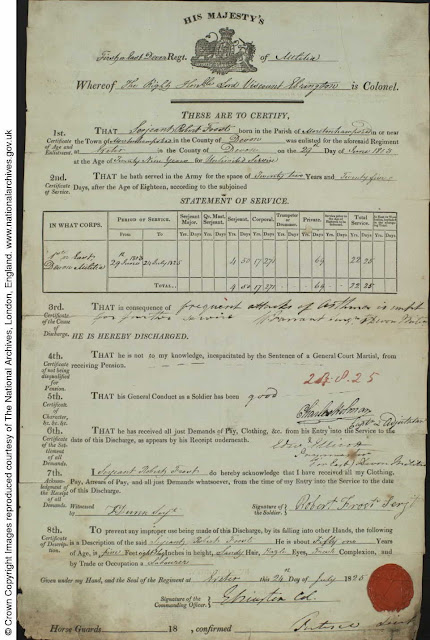 © Crown Copyright Images reproduced courtesy of The National Archives, London, England. www.nationalarchives.gov.uk
HIS MAJESTY'S
First or East Devon Regt. of Militia
Whereof The Right Honble Lord Viscount Ebrington is Colonel.
THESE ARE TO CERTIFY,
1st. Certificate of Age and Enlistment.
THAT Serjeant Robert Frost born in the Parish of in or near
the Town of in the County of Devon was enlisted for the aforesaid Regiment
at Exeter in the County of Devon on the 29th Day of June 1803
at the Age of Twenty Nine Years for Unlimited Service
2nd. Certificate
THAT he hath served in the Army for the space of Twenty two Years and Twenty five
Days, after the Age of Eighteen, according to the subjoined
STATEMENT OF SERVICE.
IN WHAT CORPS.
PERIOD OF SERVICE.
From To
Serjeant Major.
Qr. Mast. Serjeant.
Serjeant.
Corporal.
Trumpeter or Drummer.
Private.
Total Service.
Yrs. Days
1st or East Devon Militia
29th June 1803 24 July 1825 4 50 17 271 69 22 25
TOTAL... 4 50 17 271 69 22 25
3rd. Certificate of the Cause of Discharge.
THAT in consequence of frequent attacks of Asthma is unfit
for further service
HE IS HEREBY DISCHARGED.
4th. Certificate of not being disqualified for Pension.
THAT he is not to my knowledge, incapacitated by the Sentence of a General Court Martial, from
receiving Pension.
5th. Certificate of Character, &c. &c. &c.
THAT his General Conduct as a Soldier has been good
Charles Holman
Capt & Adjutant
6th. Certificate of the Settlement of all Demands.
THAT he has received all just Demands of Pay, Clothing, &c. from his Entry into the Service to the
date of this Discharge, as appears by his Receipt underneath.
East Devon Militia
7th. Acknowledgment of the Receipt of all Demands.
I, Serjeant Robert Frost do hereby acknowledge that I have received all my Clothing,
Pay, Arrears of Pay, and all just Demands whatsoever, from the time of my Entry into the Service to the
date of this Discharge.
Witnessed by
Signature of the Soldier, Robert Frost Serjt
8th. Certificate of Description.
To prevent any improper use being made of this Discharge, by its falling into other Hands, the following
is a Description of the said Serjeant Robert Frost He is about Fifty one Years
of Age, is five Feet eight Inches in height, Sandy Hair, Eyes, Fresh Complexion, and
by Trade or Occupation a Labourer
Given under my Hand, and the Seal of the Regiment at Exeter this 24th Day of July 1825
Signature of the Commanding Officer, Ebrington Col.
Horse Guards 18 , confirmed